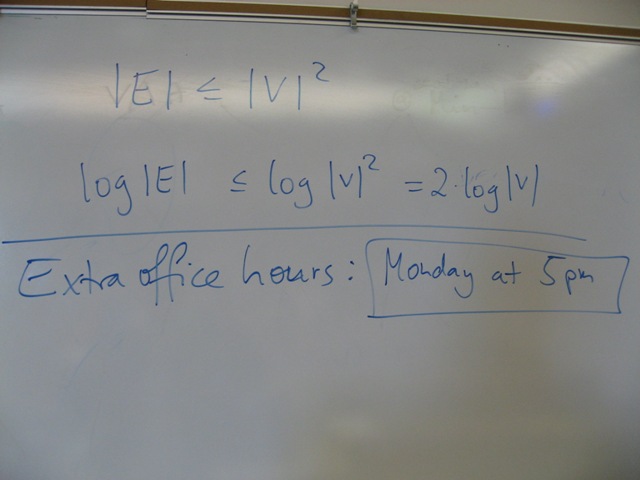 |E| ≤ |V|²
log|E| ≤ log|V|² = 2·log|V|
Extra office hours: Monday at 5pm